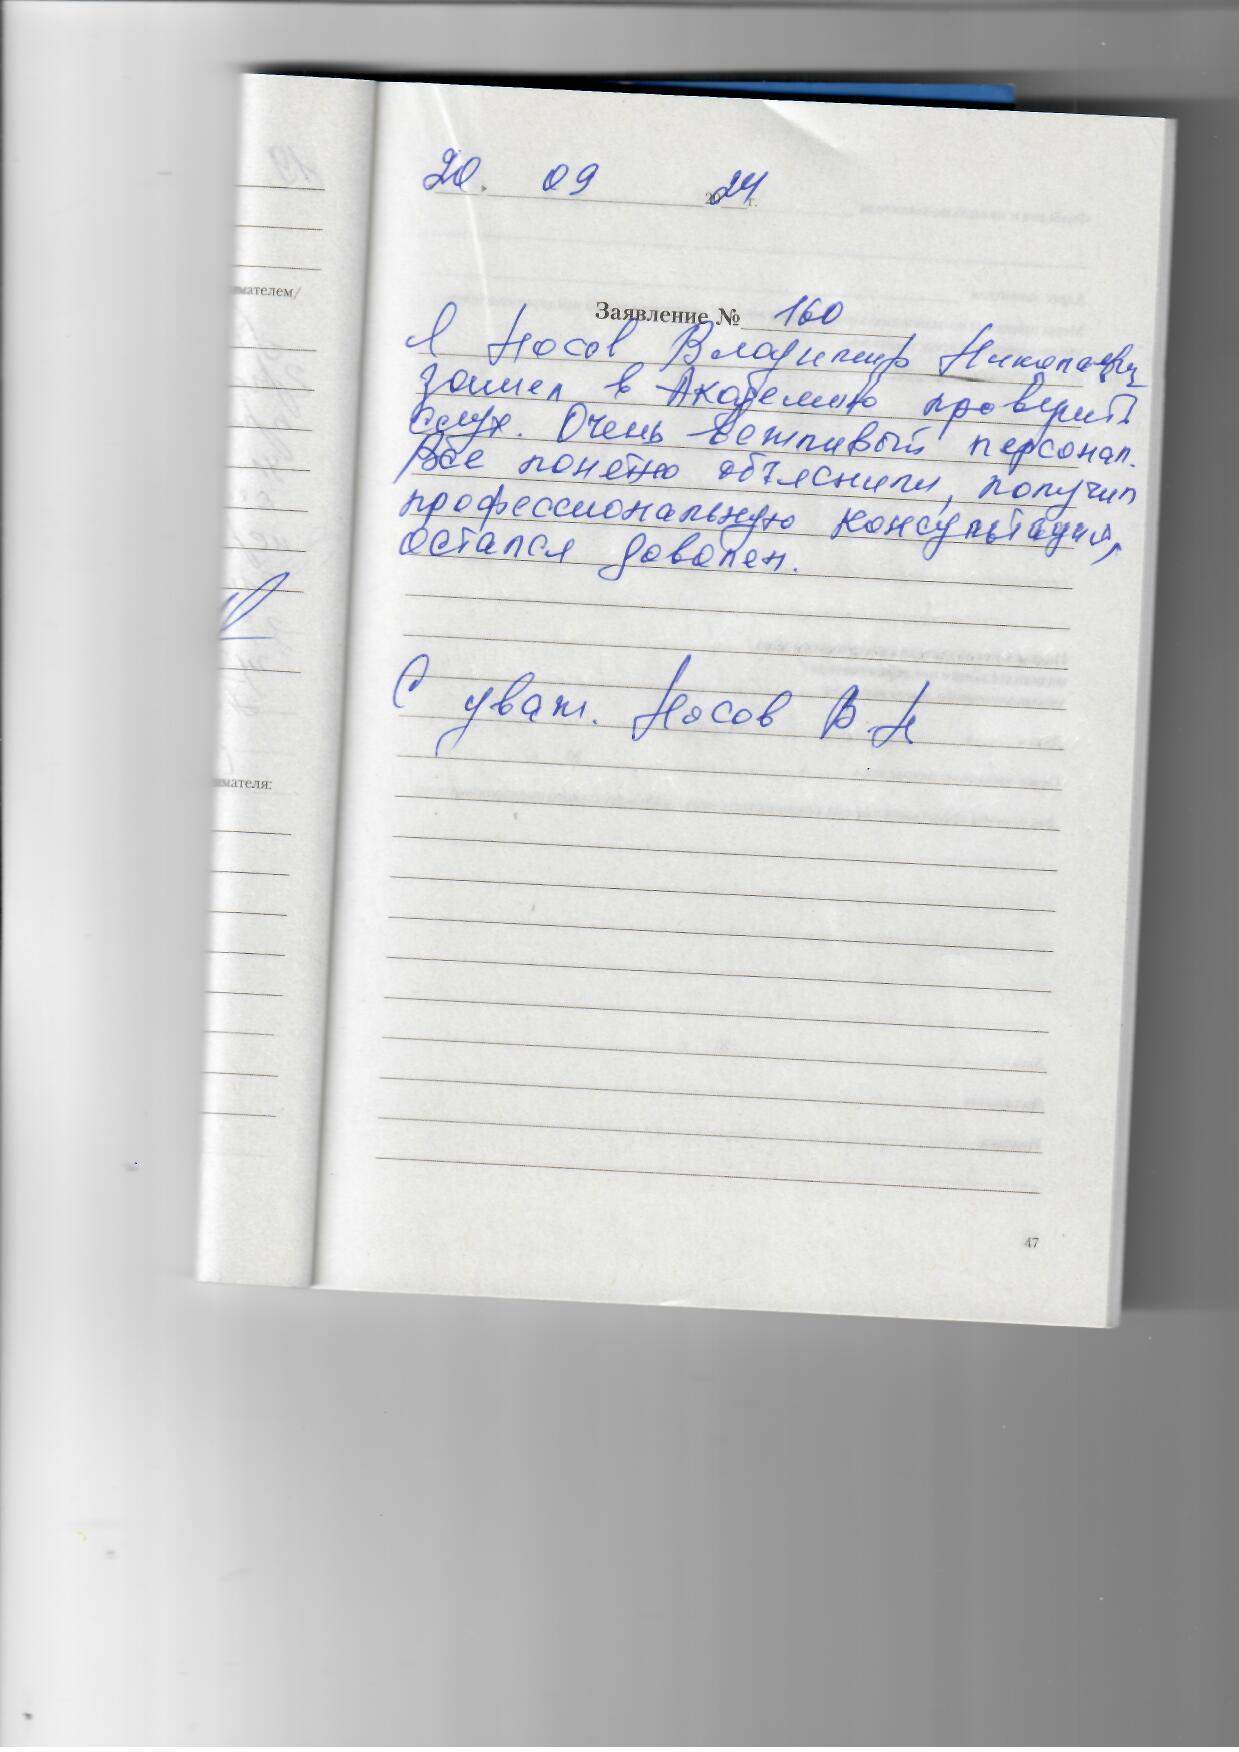 20. 09 2024 г.
мателем/
Заявление № 160
Я Носов Владимир Николаевич
зашел в Академию проверить
слух. Очень вежливый персонал.
Все понятно объяснили, получил
профессиональную консультацию,
остался доволен.
С уваж. Носов В.Н
мателя:
47